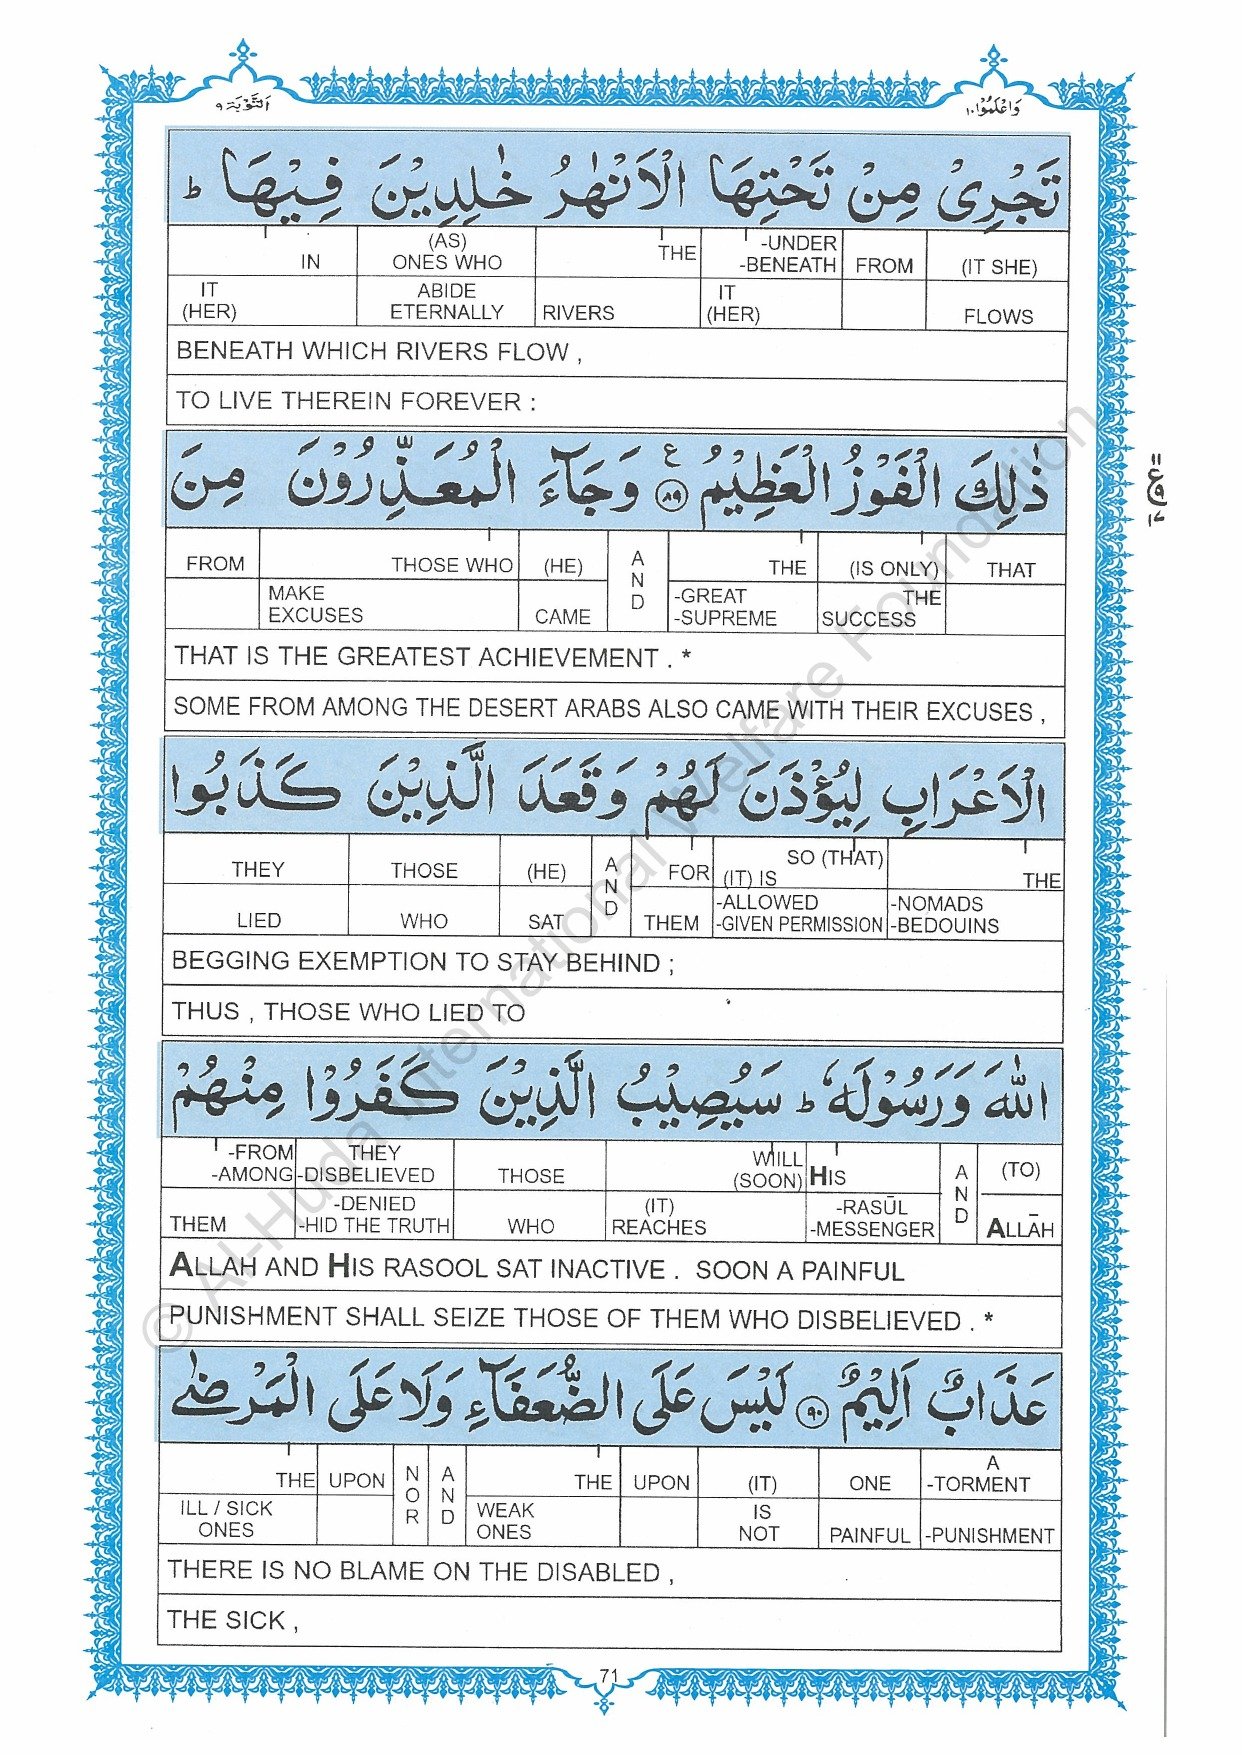 وَاعْلَمُوْٓا ١٠
اَلتَّوْبَة ٩
تَجْرِىْ مِنْ تَحْتِهَا الْاَنْهٰرُ خٰلِدِيْنَ فِيْهَا ؕ
IN (AS) ONES WHO THE -UNDER -BENEATH FROM (IT SHE)
IT (HER) ABIDE ETERNALLY RIVERS IT (HER) FLOWS
BENEATH WHICH RIVERS FLOW ,
TO LIVE THEREIN FOREVER :
ذٰلِكَ الْفَوْزُ الْعَظِيْمُ ﴿٨٩﴾ ع وَجَآءَ الْمُعَذِّرُوْنَ مِنَ
FROM THOSE WHO (HE) AND THE (IS ONLY) THAT
MAKE EXCUSES CAME -GREAT -SUPREME THE SUCCESS
THAT IS THE GREATEST ACHIEVEMENT . *
SOME FROM AMONG THE DESERT ARABS ALSO CAME WITH THEIR EXCUSES ,
الْاَعْرَابِ لِيُؤْذَنَ لَهُمْ وَقَعَدَ الَّذِيْنَ كَذَبُوا
THEY THOSE (HE) AND FOR SO (THAT) (IT) IS THE
LIED WHO SAT THEM -ALLOWED -GIVEN PERMISSION -NOMADS -BEDOUINS
BEGGING EXEMPTION TO STAY BEHIND ;
THUS , THOSE WHO LIED TO
اللّٰهَ وَرَسُوْلَهٗ ؕ سَيُصِيْبُ الَّذِيْنَ كَفَرُوْا مِنْهُمْ
-FROM -AMONG THEY -DISBELIEVED THOSE WILL (SOON) HIS AND (TO)
THEM -DENIED -HID THE TRUTH WHO (IT) REACHES -RASŪL -MESSENGER ALLĀH
ALLAH AND HIS RASOOL SAT INACTIVE . SOON A PAINFUL
PUNISHMENT SHALL SEIZE THOSE OF THEM WHO DISBELIEVED . *
عَذَابٌ اَلِيْمٌ ﴿٩٠﴾ لَيْسَ عَلَى الضُّعَفَآءِ وَلَا عَلَى الْمَرْضٰى
THE UPON NOR AND THE UPON (IT) ONE A -TORMENT
ILL / SICK ONES WEAK ONES IS NOT PAINFUL -PUNISHMENT
THERE IS NO BLAME ON THE DISABLED ,
THE SICK ,
71
© Al-Huda International Welfare Foundation